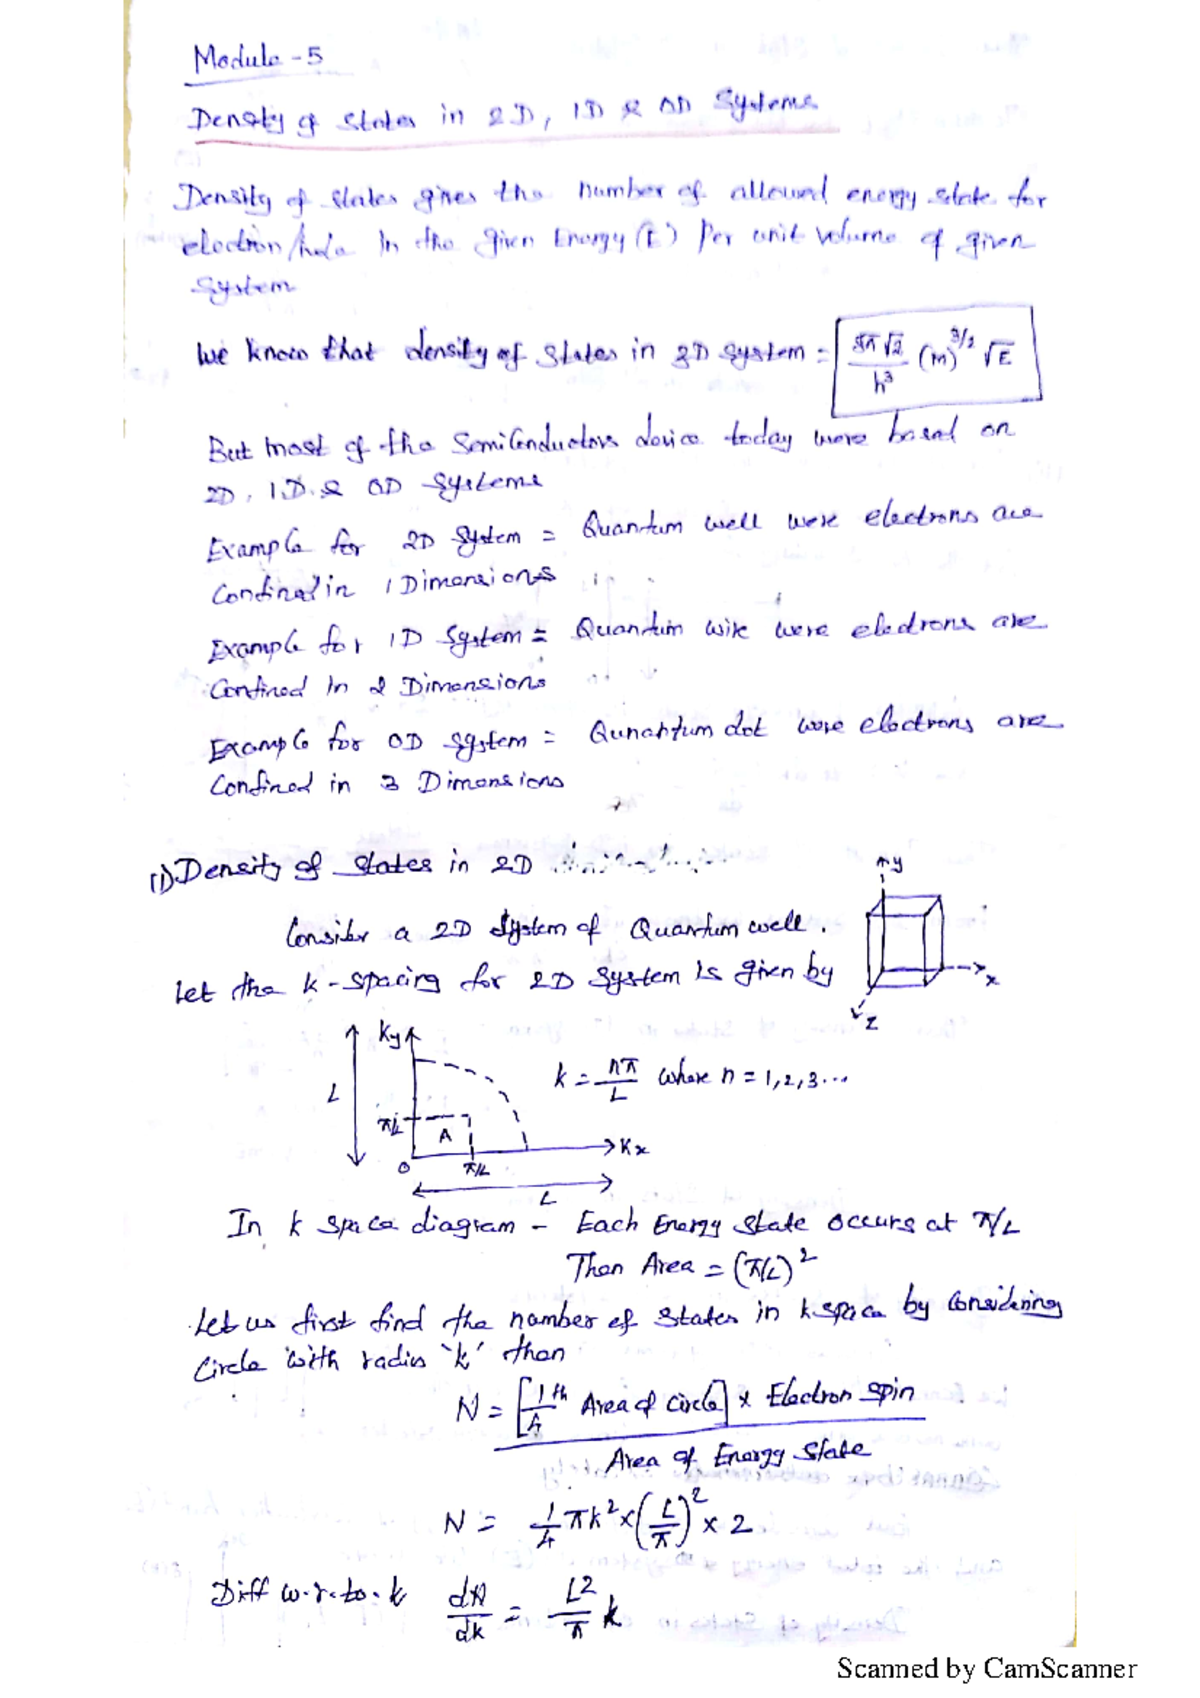 Module - 5
Density of States in 2D, 1D & 0D Systems
Density of states gives the number of allowed energy state for
electron/hole In the given Energy (E) Per unit volume of given
System
We know that density of States in 3D system = 8π√2/h³ (m)^3/2 √E
But most of the SemiConductors device today were based on
2D, 1D. & 0D Systems
Example for 2D System = Quantum well were electrons are
Confined in 1 Dimensions
Example for 1D System = Quantum wire were electrons are
Confined In 2 Dimensions
Example for 0D system = Qunantum dot were electrons are
Confined in 3 Dimensions
(1) Density of States in 2D
y
x
z
Consider a 2D System of Quantum well.
Let the k-spacing for 2D System is given by
Ky
L
π/L
A
0
π/L
Kx
L
k = nπ/L where n = 1,2,3...
In k space diagram - Each Energy State occurs at π/L
Then Area = (π/L)²
Let us first find the number of States in k space by Considering
Circle with radius 'k' then
N = [1/4 th Area of Circle] x Electron spin
Area of Energy State
N = 1/4 πk² x (L/π)² x 2
Diff w.r.to.k dN/dk = L²/π k
Scanned by CamScanner